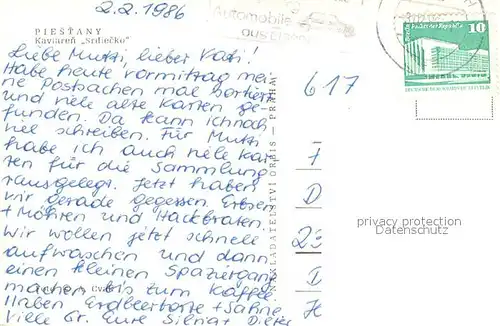 2.2.1986
PIEŠŤANY
Kaviareň „Srdiečko"
Automobile
aus Eisen
10
Liebe Mutti, lieber Vati!
Habe heute vormittag mei-
ne Postsachen mal sortiert
und viele alte Karten ge-
funden. Da kann ich noch
viel schreiben. Für Mutti
habe ich auch viele Kar-
ten für die Sammlung
rausgelegt. Jetzt haben
wir gerade gegessen. Erbsen
+ Möhren und Hackbraten.
Wir wollen jetzt schnell
aufwaschen und dann
einen kleinen Spaziergang
machen bis zum Kaffee.
Haben Erdbeertorte + Sahne
Viele Gr. Eure Dieter
617
NAKLADATELSTVÍ ORBIS — PRAHA
D
privacy protection
Datenschutz